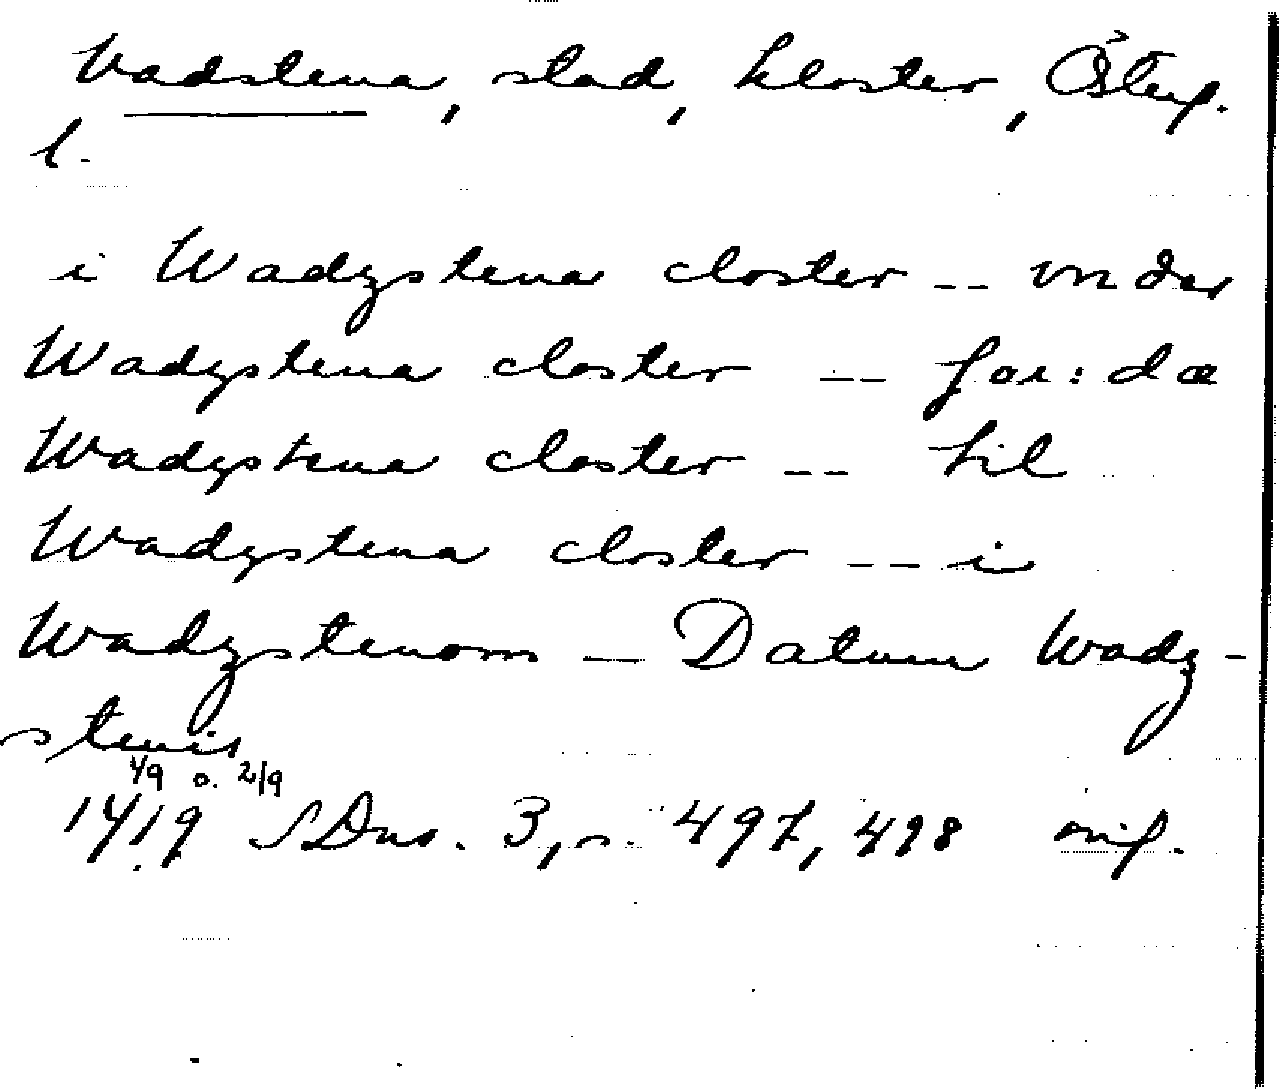 Vadstena, stad, kloster, Östergl.
l.
i Wadzstena closter -- vnder
Wadzstena closter -- for:da
Wadzstena closter -- til
Wadzstena closter -- i
Wadzstenom -- Datum Wadz-
stenis
1/9 o. 2/9
1419 SDns. 3, s. 497, 498